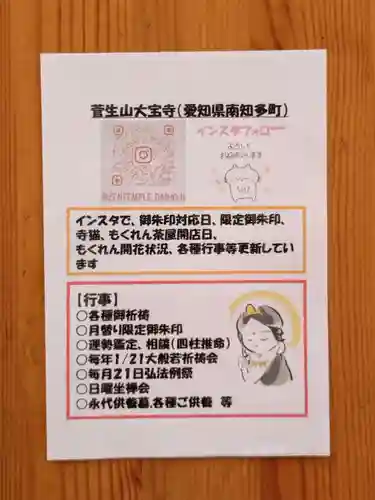 菅生山大宝寺(愛知県南知多町)
インスタフォロー
よろしく
お願いします
インスタで、御朱印対応日、限定御朱印、
寺猫、もくれん茶屋開店日、
もくれん開花状況、各種行事等更新してい
ます
【行事】
○各種御祈祷
○月替り限定御朱印
○運勢鑑定、相談(四柱推命)
○毎年1/21大般若祈祷会
○毎月21日弘法例祭
○日曜坐禅会
○永代供養墓,各種ご供養 等